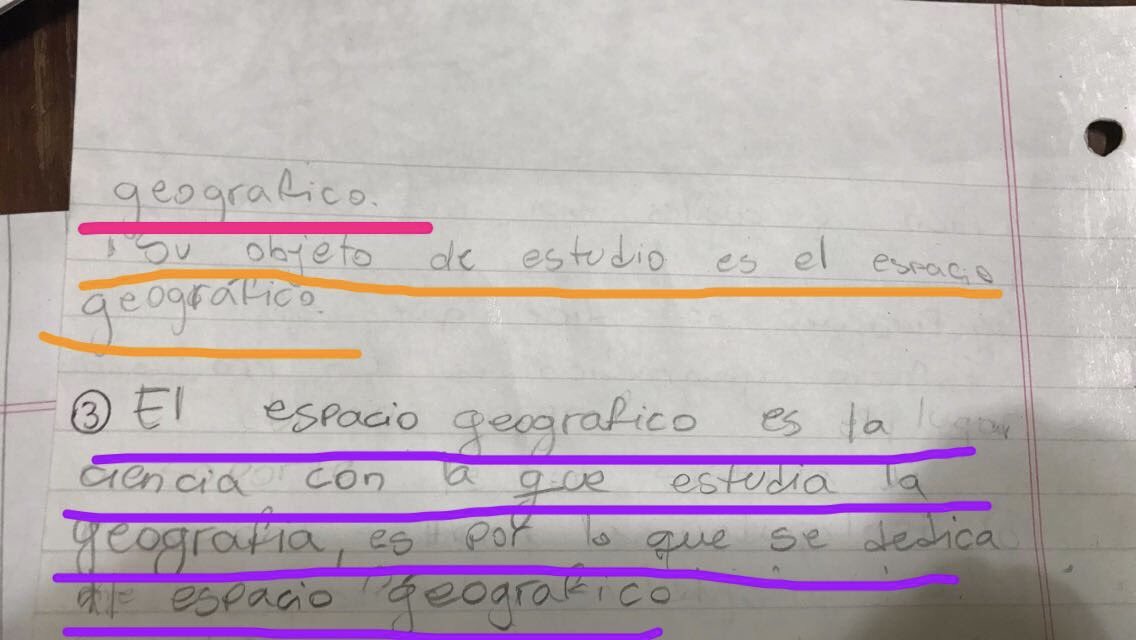 geografico.
Su objeto de estudio es el espacio
geográfico.
③ El espacio geografico es la
ciencia con la que estudia la
geografia, es por lo que se dedica
espacio geografico